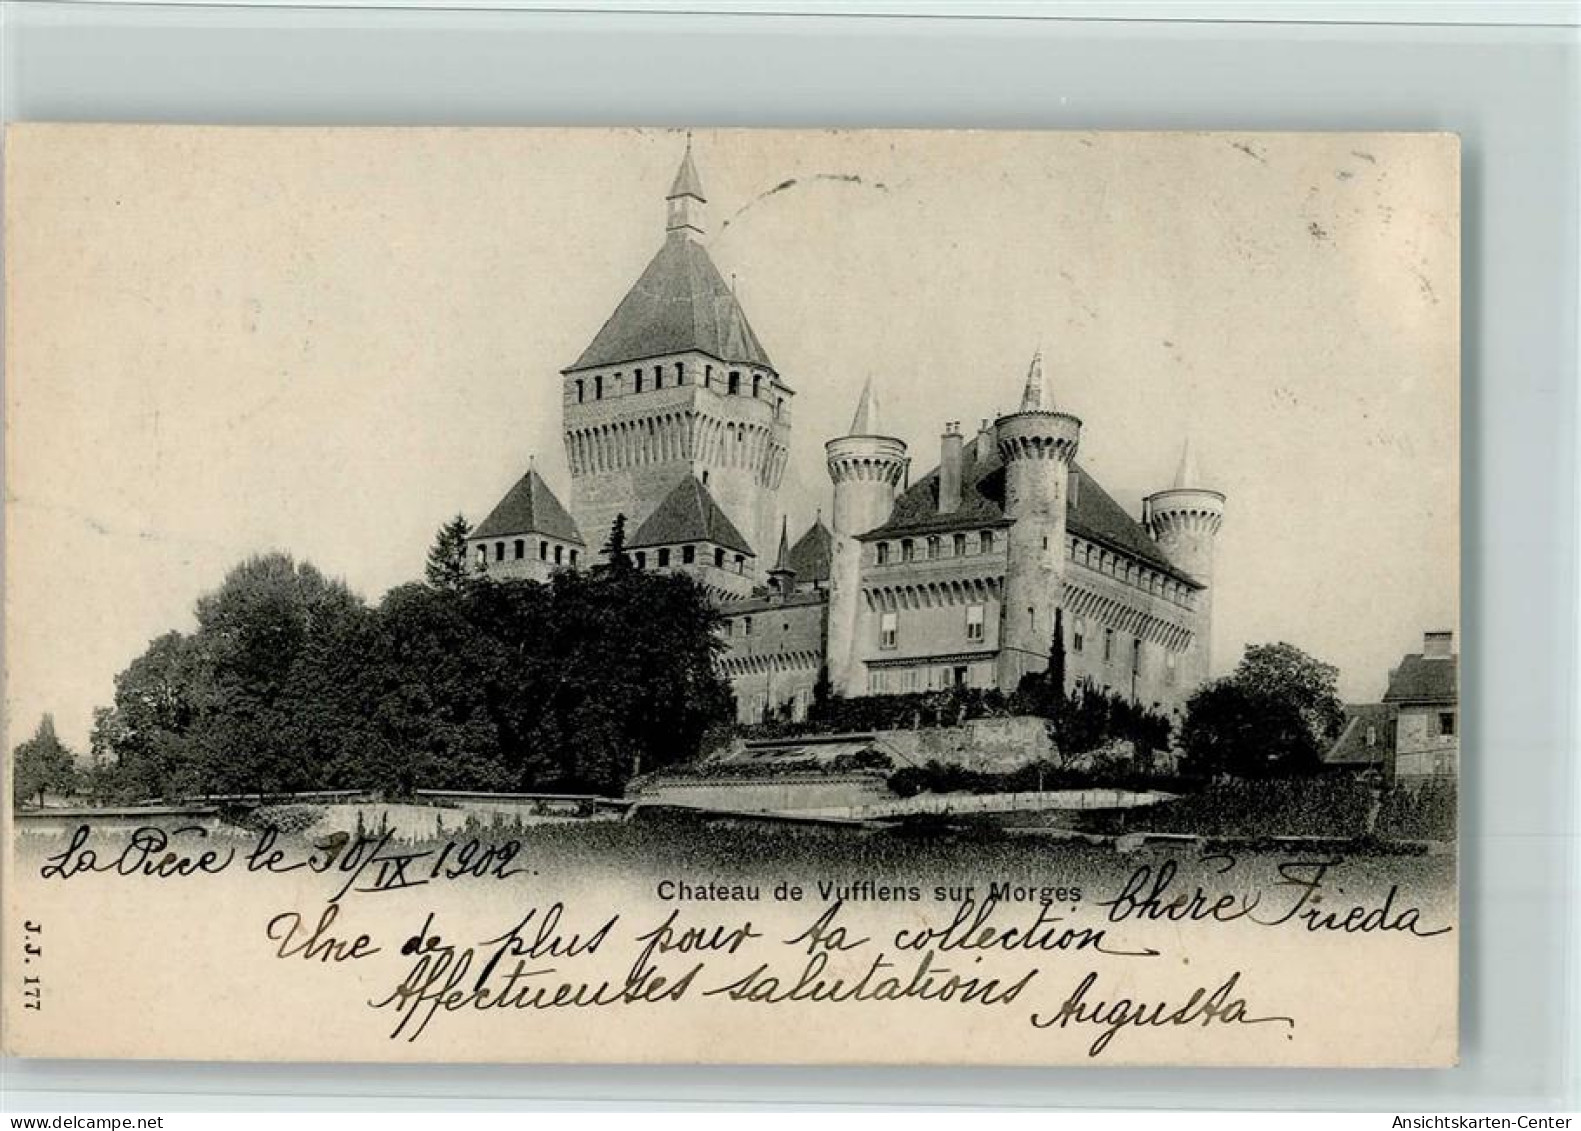 La Pièce le 30/IX 1902.
Chateau de Vufflens sur Morges
Chère Frieda
Une de plus pour ta collection
Affectueuses salutations
Augusta
J.J. 177
www.oldthing.de
Ansichtskarten-Center